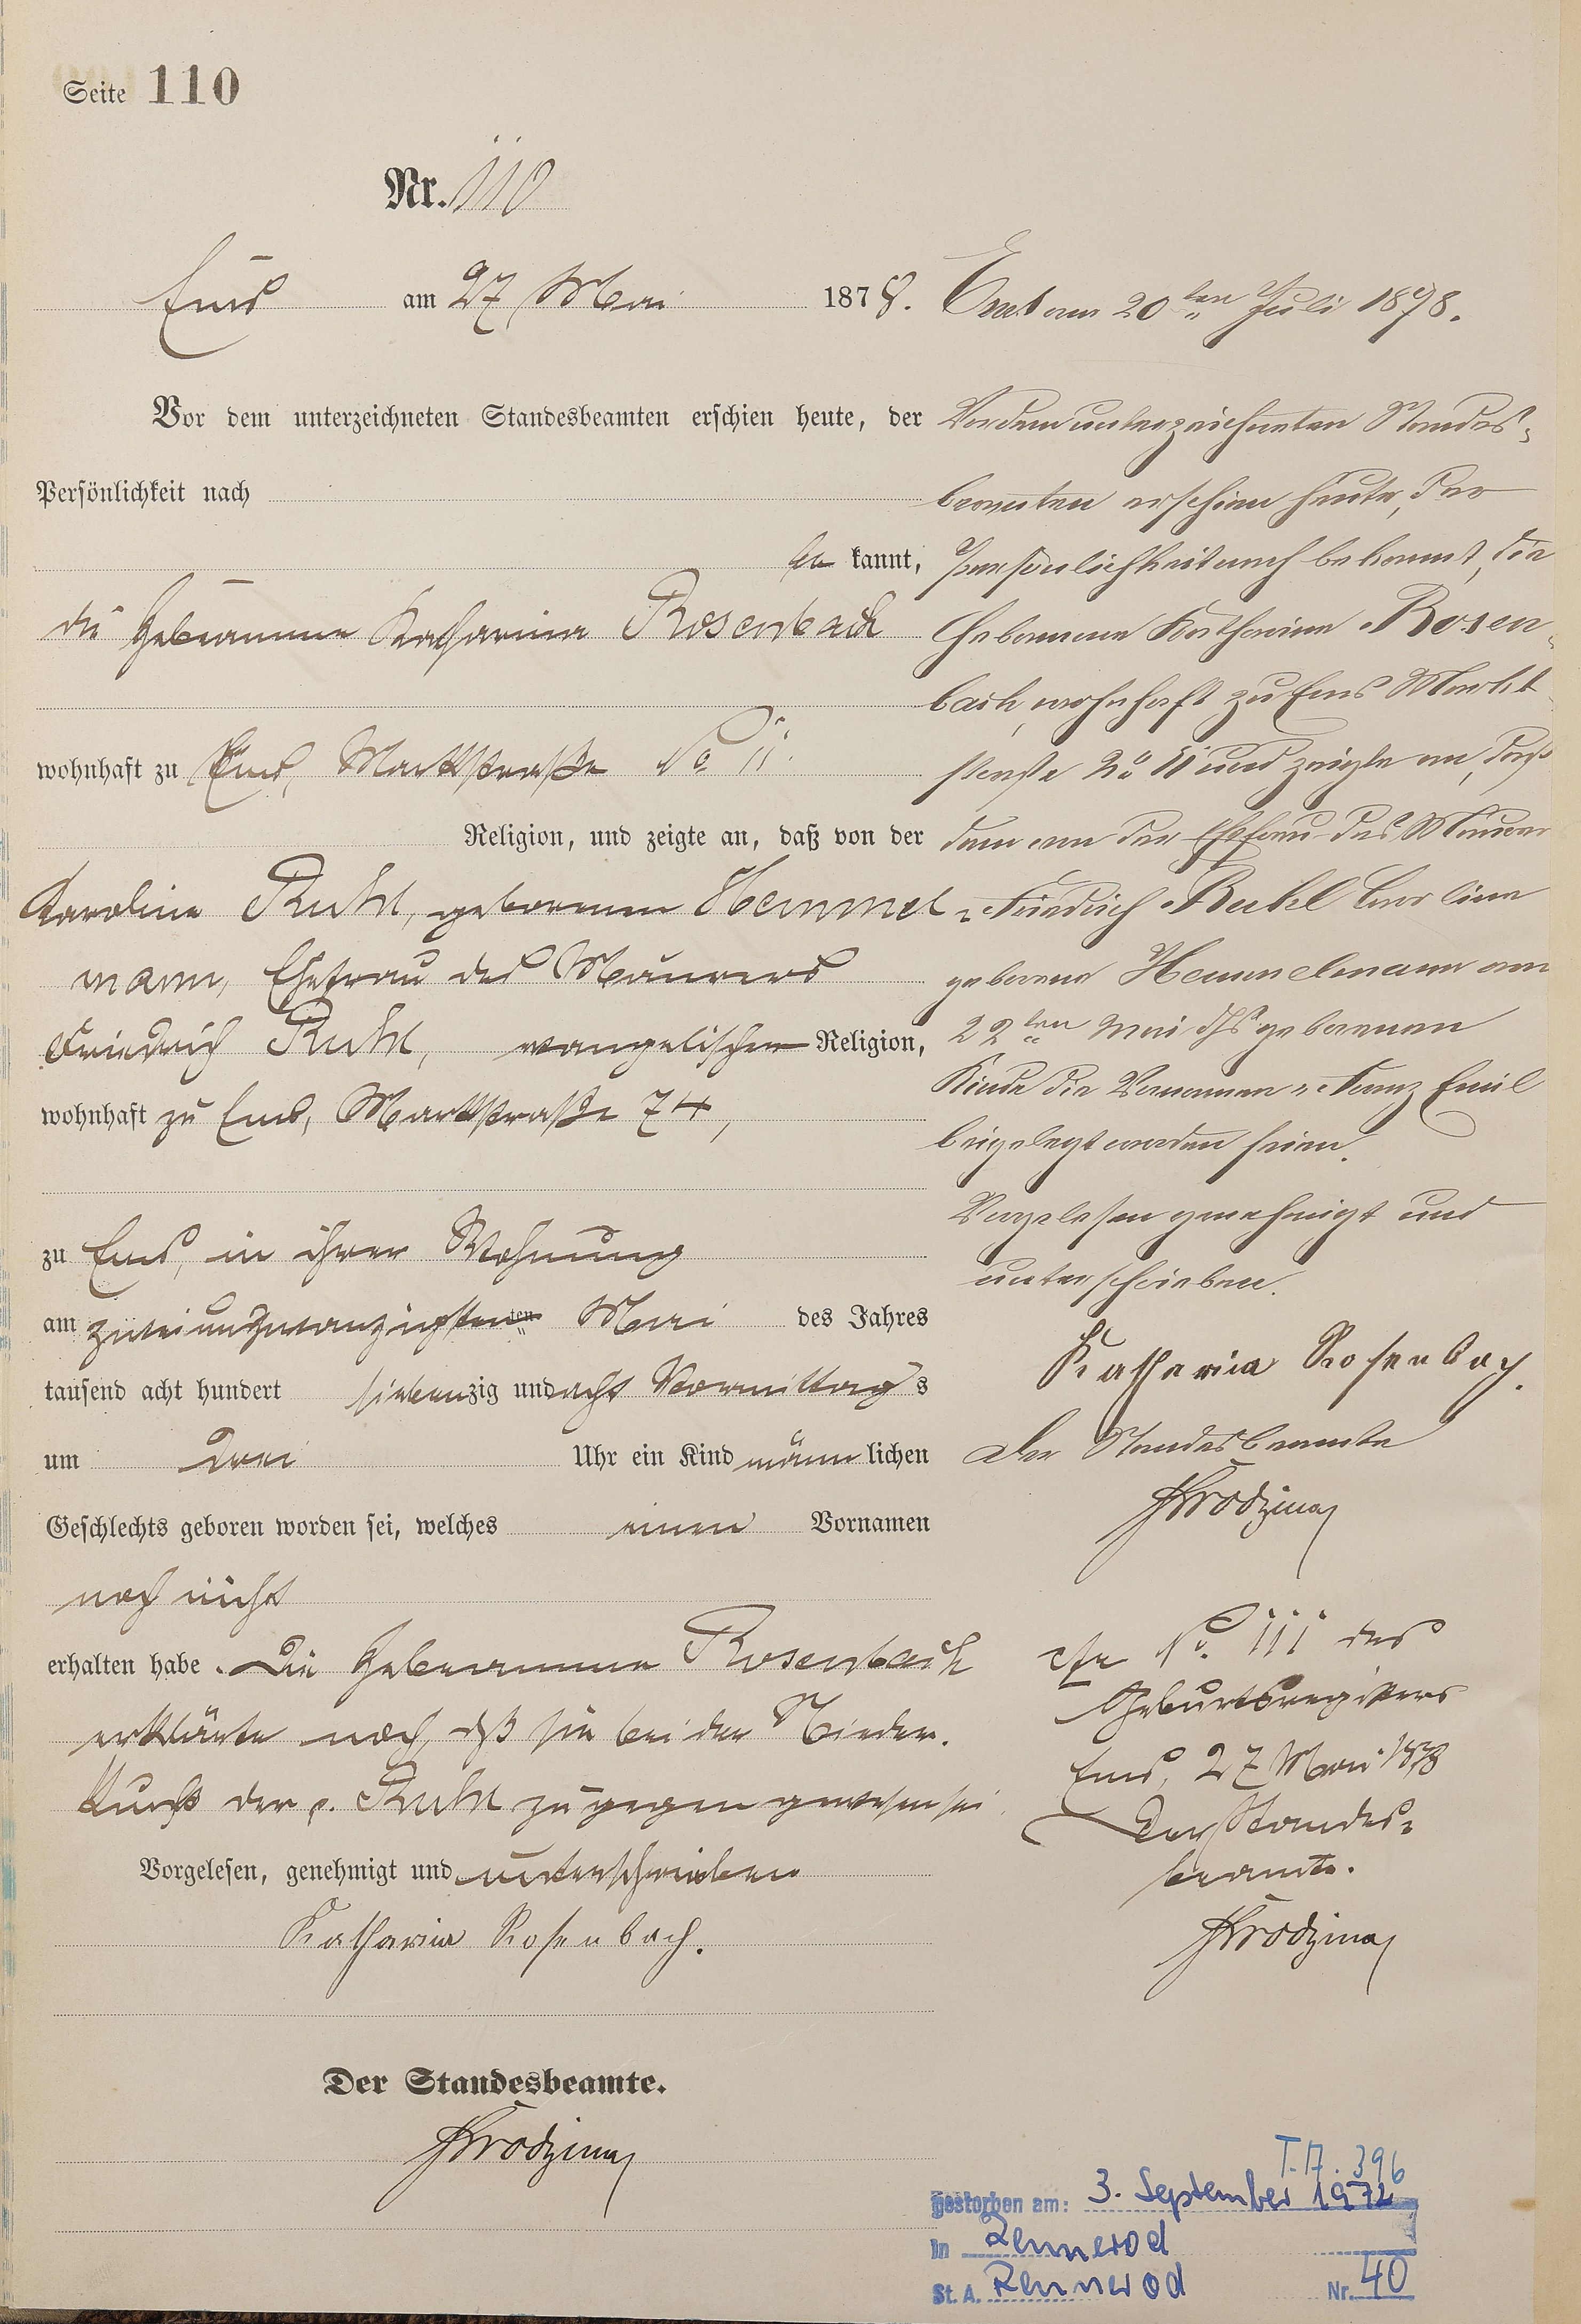 Seite 110
Nr. 110
Ems am 27 Mai 1878.
Vor dem unterzeichneten Standesbeamten erschien heute, der
Persönlichkeit nach
be kannt,
die Hebeamme Katharina Rosenbach
wohnhaft zu Ems, Marktstraße No 11.
Religion, und zeigte an, daß von der
Karoline Ruhl, geborenen Hemmel
mann, Ehefrau des Maurers
Friedrich Ruhl, evangelischen Religion,
wohnhaft zu Ems, Marktstraße 74,
zu Ems, in ihrer Wohnung
am zweiundzwanzigsten ten Mai des Jahres
tausend acht hundert siebenzig und acht Vormittag s
um drei Uhr ein Kind männ lichen
Geschlechts geboren worden sei, welches einen Vornamen
noch nicht
erhalten habe. Die Hebeamme Rosenbach
erklärte noch, daß sie bei der Nieder-
kunft der p. Ruhl zugegen gewesen sei.
Vorgelesen, genehmigt und unterschrieben
Katharina Rosenbach.
Der Standesbeamte.
Ems am 20ten Juli 1878.
Vor dem unterzeichneten Standes-
beamten erschien heute, der
Persönlichkeit nach bekannt, die
Hebamme Katharina Rosen-
bach, wohnhaft zu Ems Markt
straße No 11 und zeigte an, daß
dem von der Ehefrau des Maurer
Friedrich Ruhl Caroline
geborene Hemmelmann am
22ten Mai d. Js geborenen
Kinde die Vornamen Franz Emil
beigelegt worden seien.
Vorgelesen genehmigt und
unterschrieben.
Katharina Rosenbach.
Der Standesbeamte
cfr No. 111 des
Geburtsregisters
Ems, 27 Mai 1878
Der Standes-
beamte.
T.A. 396
gestorben am: 3. September 1972
in Rennerod
St. A. Rennerod Nr. 40